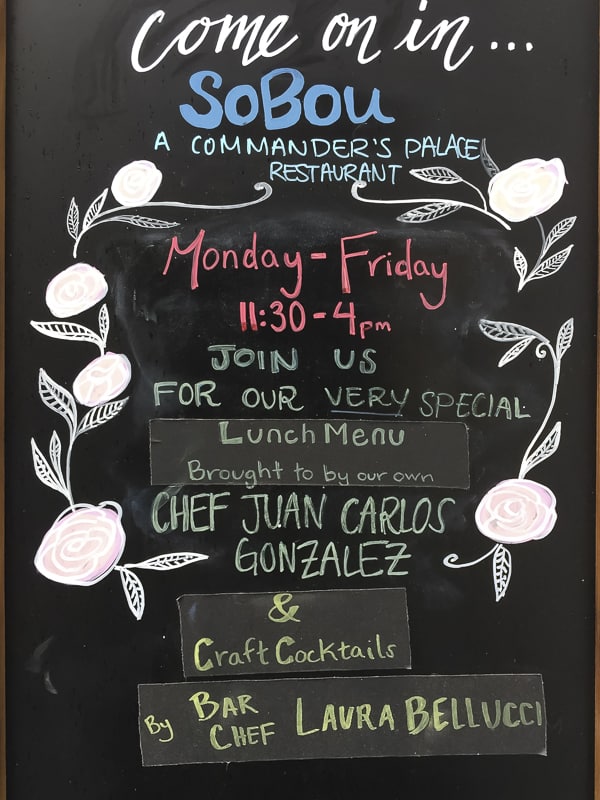 come on in...
SoBou
A COMMANDER'S PALACE
RESTAURANT
Monday - Friday
11:30 - 4pm
JOIN US
FOR OUR VERY SPECIAL
Lunch Menu
Brought to by our own
CHEF JUAN CARLOS
GONZALEZ
&
Craft Cocktails
By BAR CHEF LAURA BELLUCCI